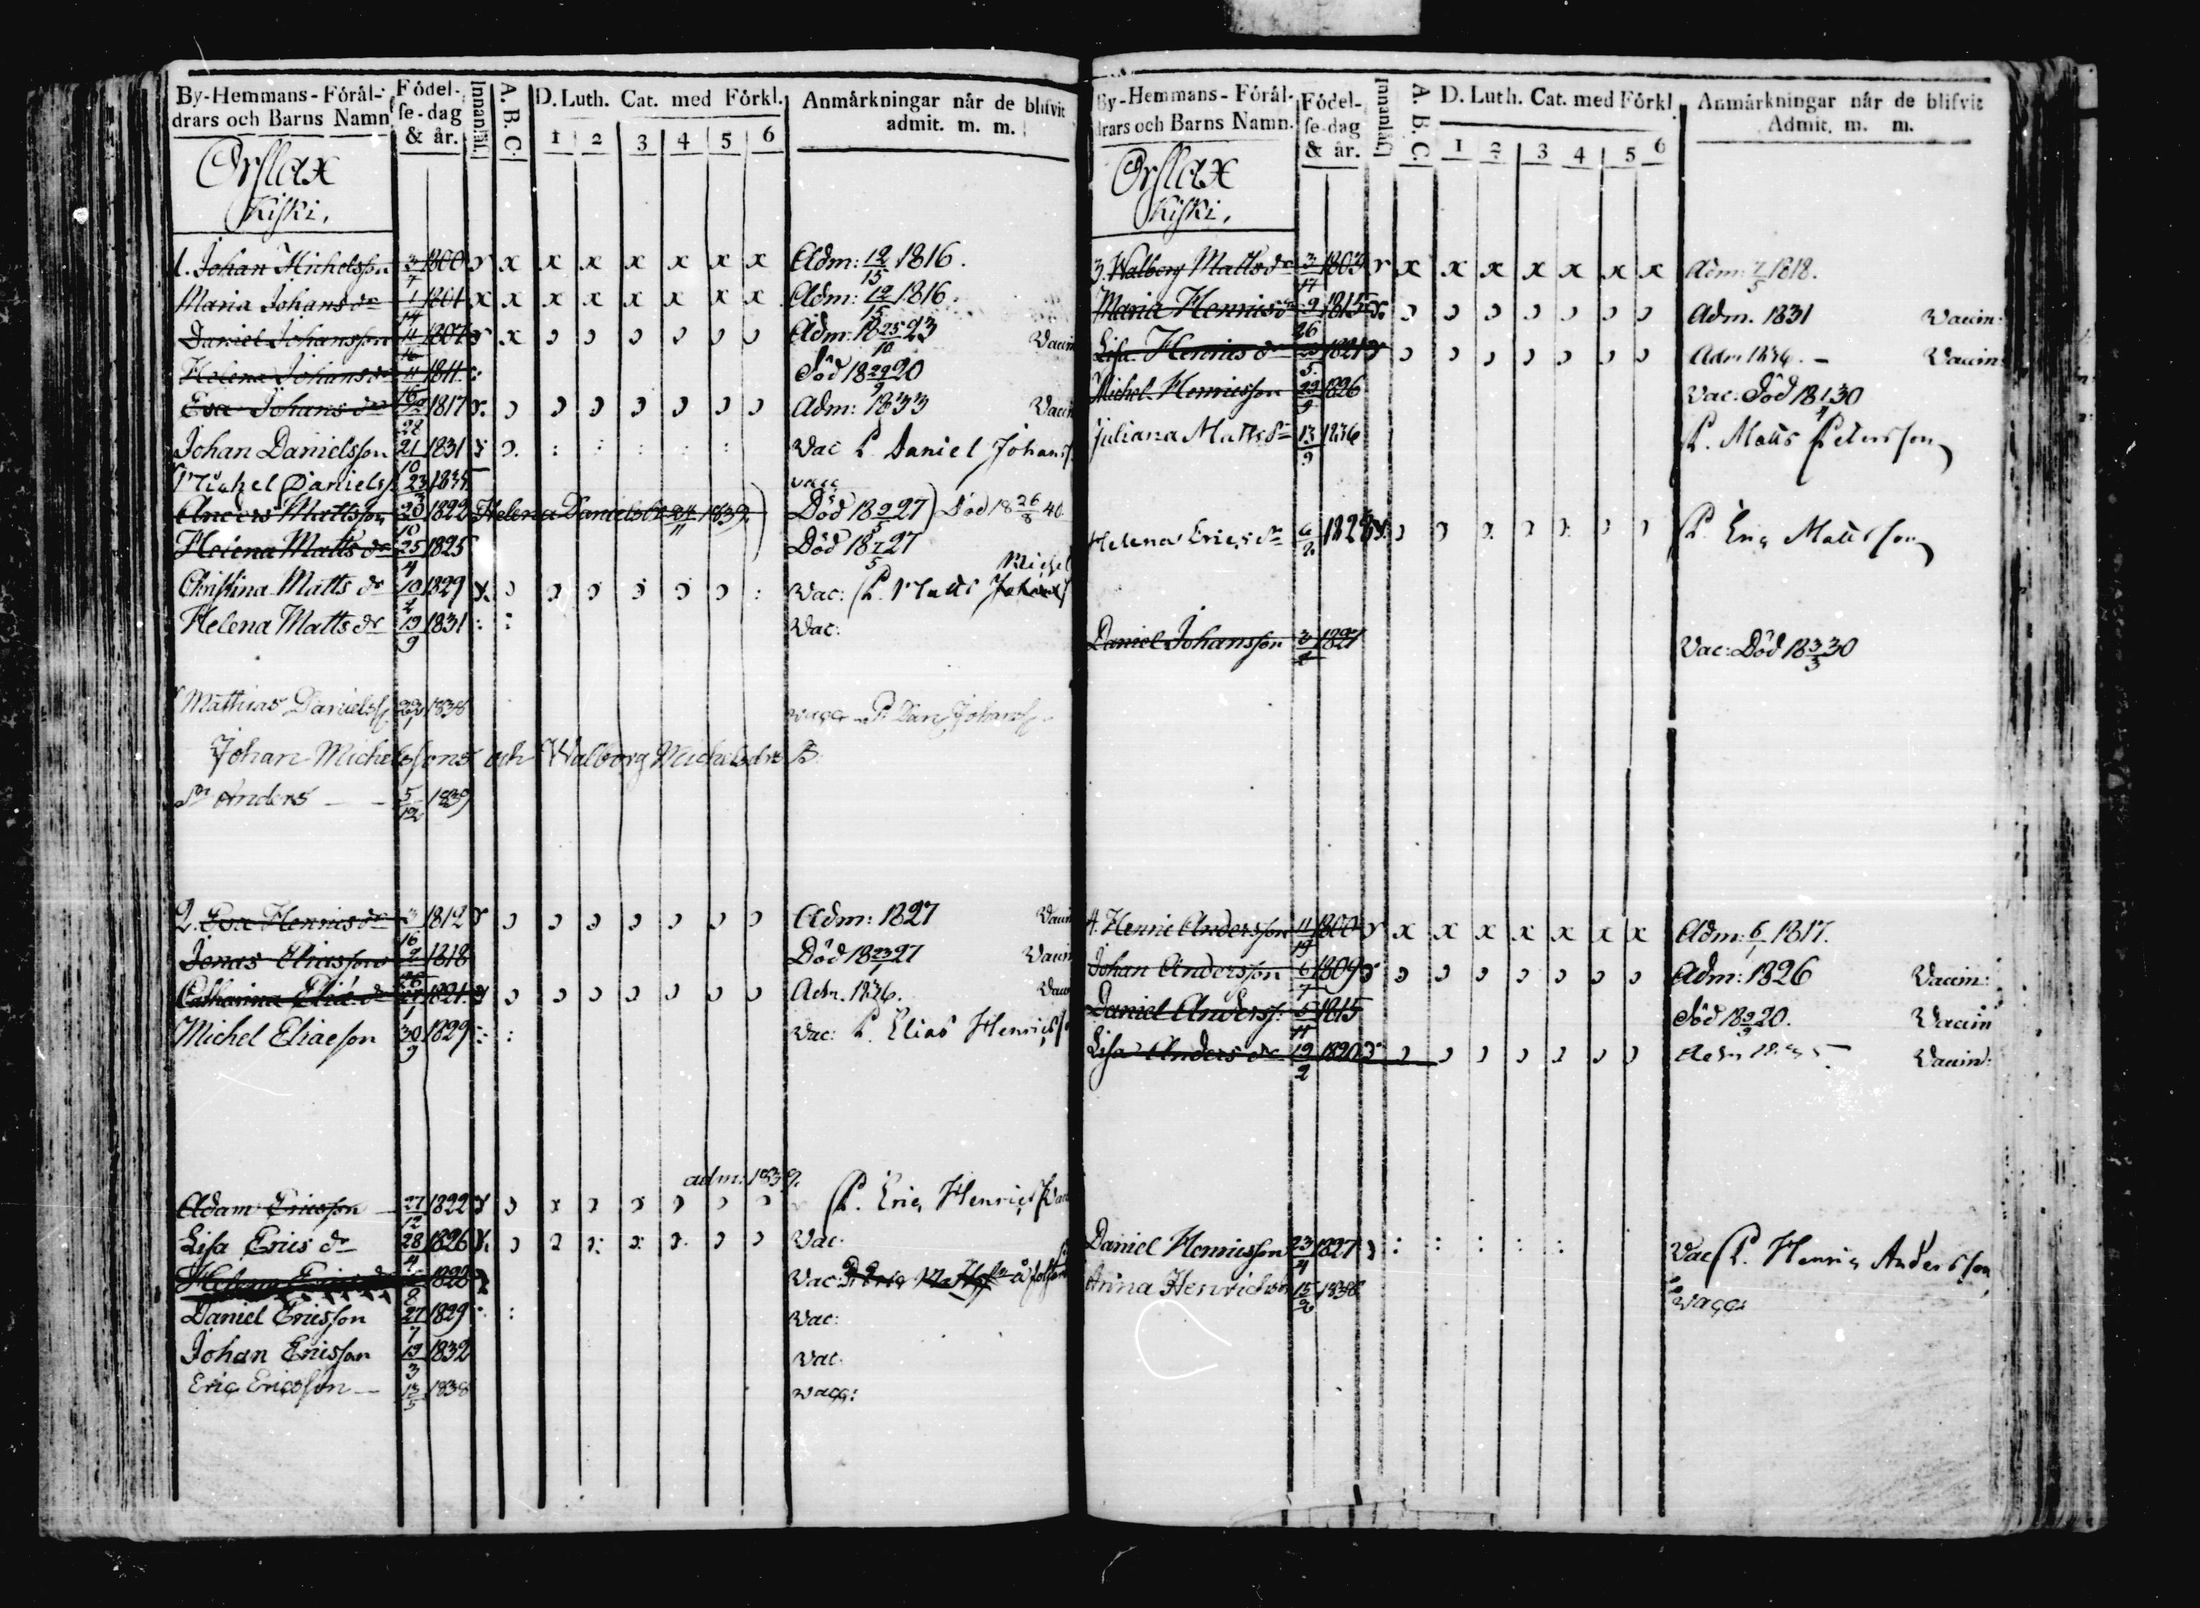 By-Hemmans-Föräl-
drars och Barns Namn
Födel-
se-dag
& år.
Innanläs.
A. B. C.
D. Luth. Cat. med Förkl.
1 2 3 4 5 6
Anmärkningar när de blifvit
admit. m. m.
Orslax
Kiski,
1. Johan Michelsson 3/7 1800 x x x x x x x Adm: 12/15 1816.
Maria Johans dr 1/14 1801 x x x x x x x x Adm: 12/15 1816.
Daniel Johansson 11/16 1807 x Adm: 18 25/10 23 Vaccin
Helena Johans dr 11/16 1811 Död 18 29/9 20
Eva Johans dr 1817 Adm: 1833 Vaccin
28
Johan Danielsson 21/10 1831 Vac P. Daniel Johanss
Michel Danielss. 23/3 1835 vacc
Anders Mattsson 20/10 1822 Helena Daniels dr 24/11 1839. Död 18 9/5 27 Död 18 26/8 40
Helena Matts dr 25/4 1825 Död 18 7/5 27
Michel
Christina Matts dr 10/2 1829 Vac: P. Matts Johanss
Helena Matts dr 19/9 1831 Vac:
Mathias Danielss. 1838 vacc P. Dan Johanss.
Johan Michelssons och Walborg Michelsdrs B.
Sn Anders 5/12 1839
2. Eva Henrics dr 3/16 1812 Adm: 1827 Vaccin
Jonas Eliasson 2/26 1818 Död 18 23/1 27 Vaccin
Catharina Eliæ dr 27/1 1821 Adm. 1836. Vaccin
Michel Eliæson 30/9 1829 Vac: P. Elias Henricss
adm. 1839.
Adam Ericsson 27/12 1822 P. Eric Henricss Vac
Lisa Erics dr 28/4 1826 Vac.
Helena Erics dr 6/8 1828 Vac
Daniel Ericsson 27/7 1829 Vac:
Johan Ericsson 19/3 1832 Vac.
Eric Ericsson 13/5 1838 vacc:
By-Hemmans-Föräl-
drars och Barns Namn.
Födel-
se-dag
& år.
Innanläs.
A. B. C.
D. Luth. Cat. med Förkl
1 2 3 4 5 6
Anmärkningar när de blifvit
Admit. m. m.
Orslax
Kiski,
3. Walborg Matts dr 3/17 1803 x x x x x x x Adm: 7/5 1818.
Maria Henrics dr 9/26 1815 Adm. 1831 Vaccin:
Lisa Henrics dr 23/5 1821 Adm 1836. – Vaccin:
Michel Henricsson 29/9 1826 Vac: Död 18 1/4 30
Juliana Matts dr 13/9 1836 P. Matts Petersson
Helena Erics dr 6/2 1828 P. Eric Mattsson
Daniel Johansson 1827 Vac: Död 18 3/3 30
4. Henric Andersson 11/19 1800 x x x x x x x Adm: 6/1 1817.
Johan Andersson 6/7 1809 Adm: 1826 Vaccin:
Daniel Anderss: 5/11 1815 Död 18 9/3 20. Vaccin
Lisa Anders dr 19/2 1820 Adm 1835 Vaccin:
Daniel Henricsson 23/4 1827 Vac P. Henric Andersson
Anna Henrics dr 15/2 1838 vacc: